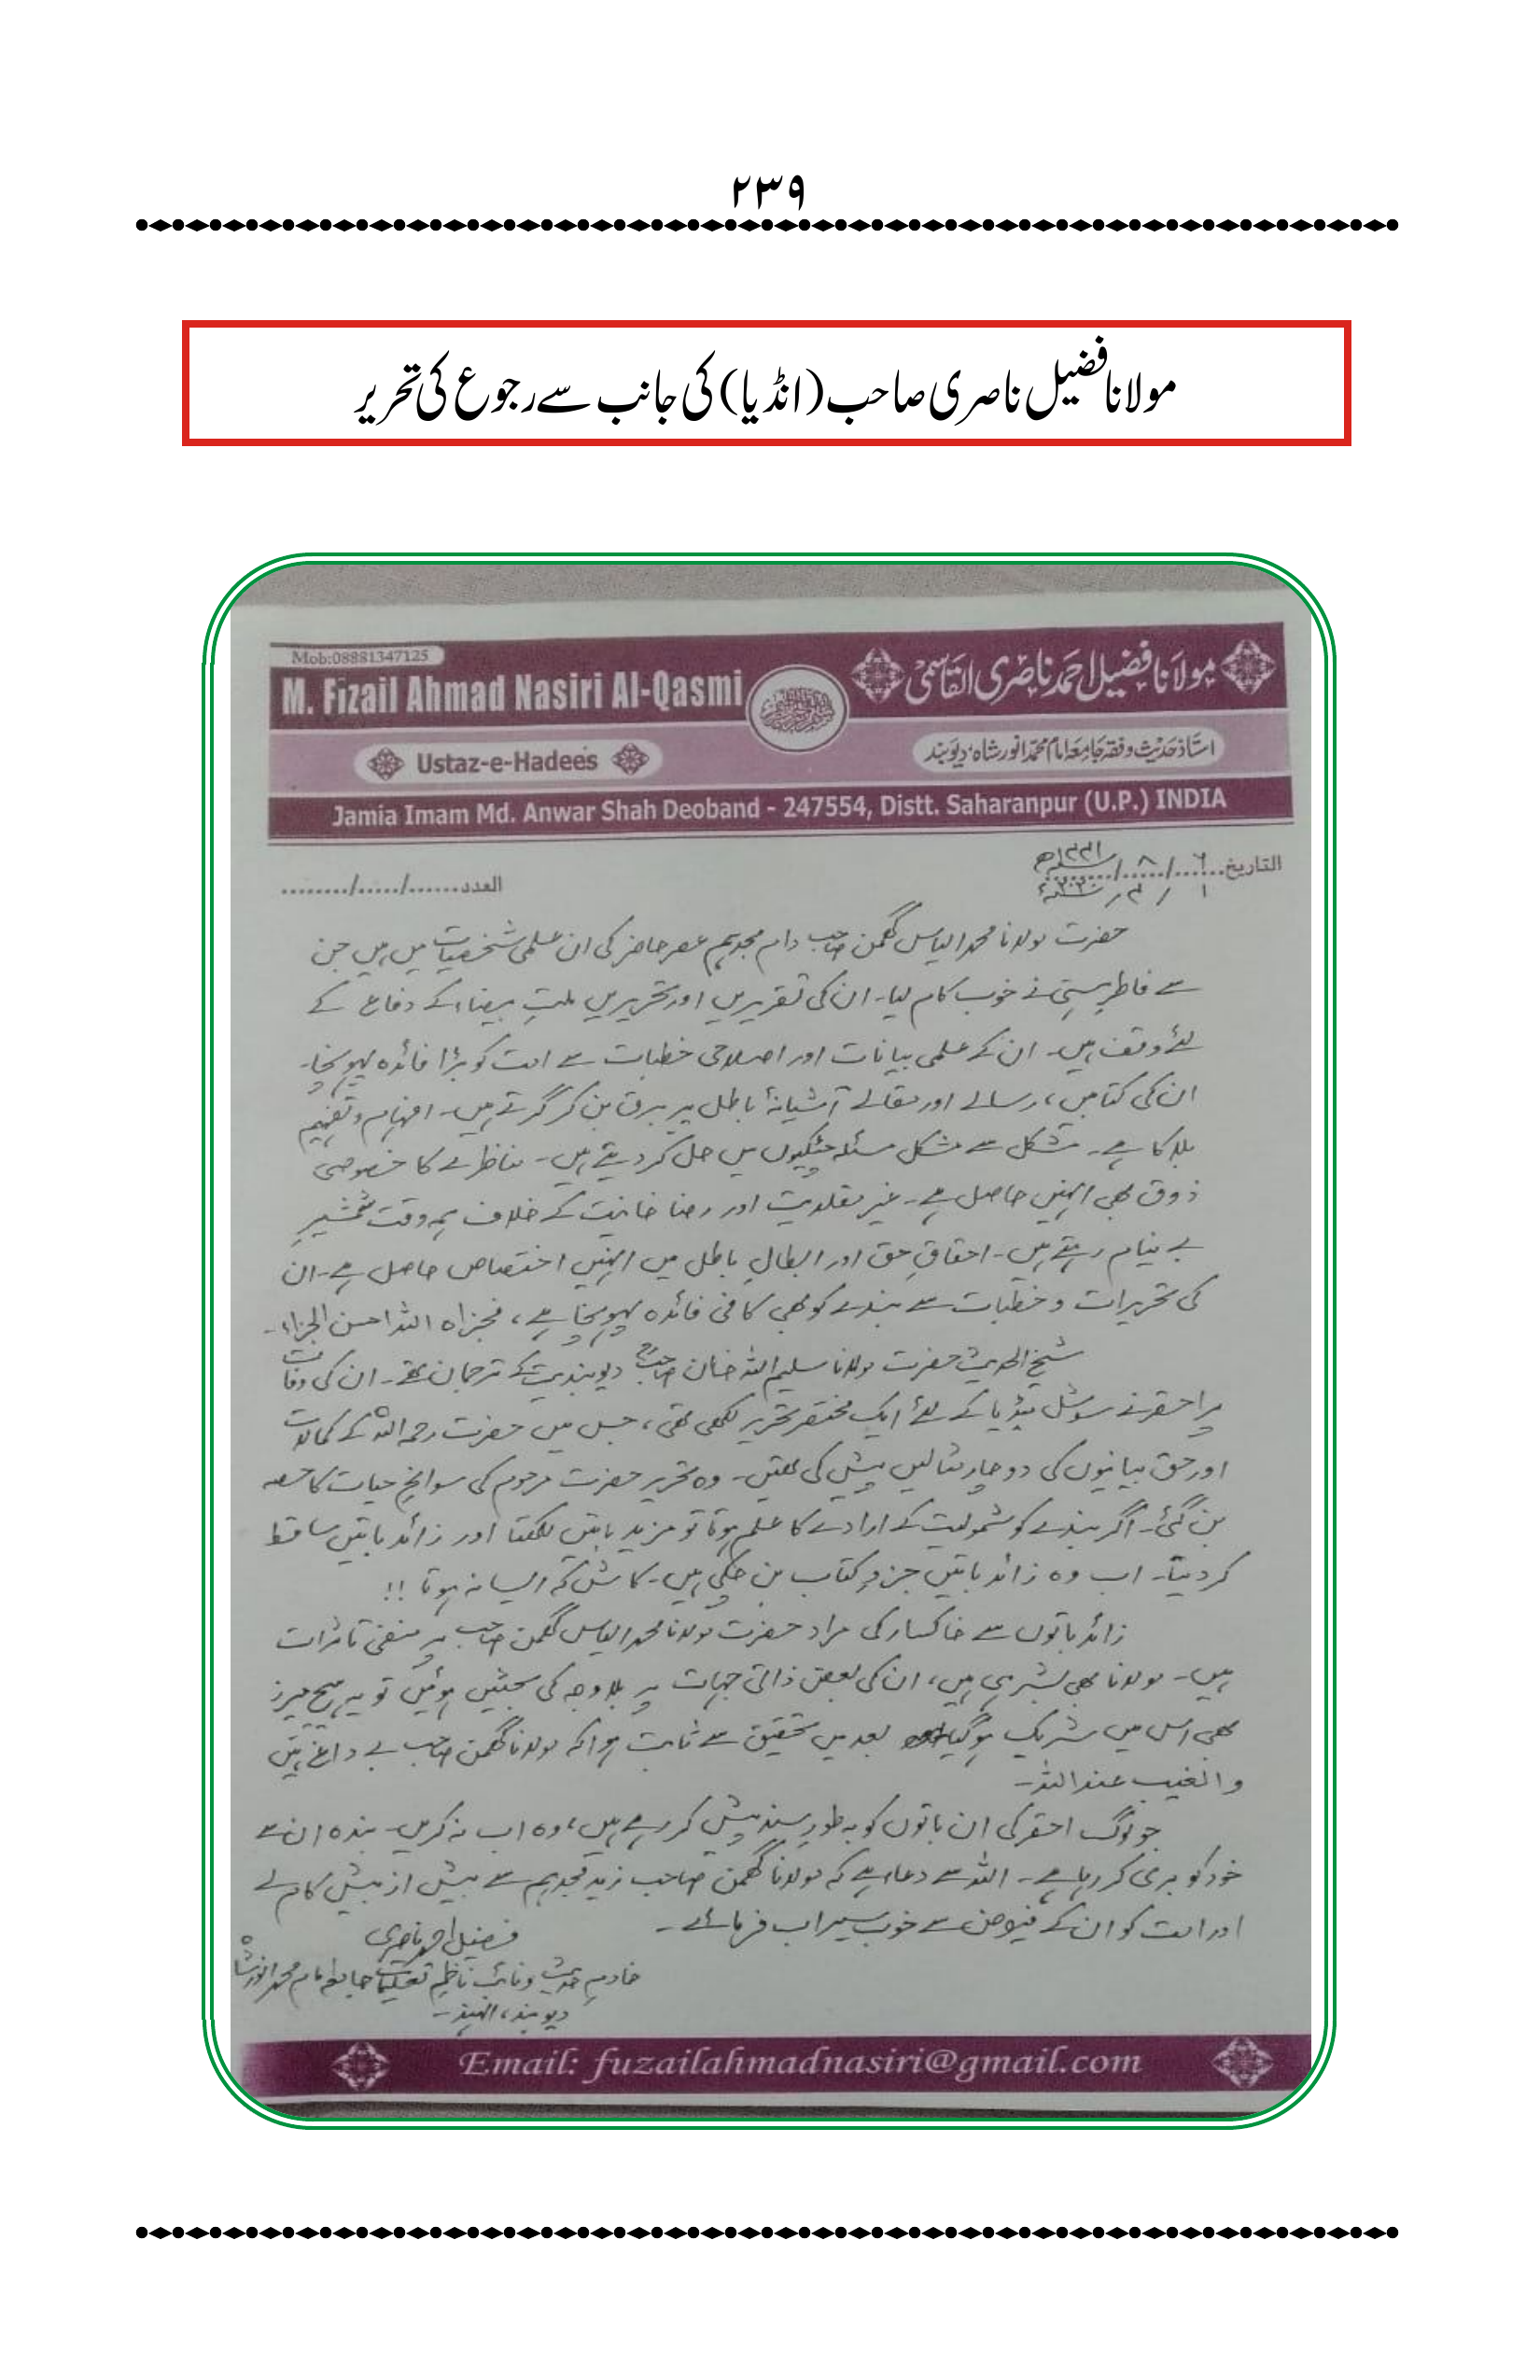 ۲۳۹
مولانا فضیل ناصری صاحب (انڈیا) کی جانب سے رجوع کی تحریر
Mob:08881347125
M. Fizail Ahmad Nasiri Al-Qasmi
مولانا فضیل احمد ناصری القاسمی
Ustaz-e-Hadees
استاذ حدیث و فقہ جامعہ امام محمد انور شاہ، دیوبند
Jamia Imam Md. Anwar Shah Deoband - 247554, Distt. Saharanpur (U.P.) INDIA
التاریخ ٦/٨/١٤٤١ھ
العدد
١/٤/٢٠٢٠ء
حضرت مولانا محمد الیاس گھمن صاحب دام مجدہم عصر حاضر کی ان علمی شخصیات میں ہیں جن
سے فاطرِ ہستی نے خوب کام لیا۔ ان کی تقریریں اور تحریریں ملتِ بیضاء کے دفاع کے
لئے وقف ہیں۔ ان کے علمی بیانات اور اصلاحی خطبات سے امت کو بڑا فائدہ پہونچا۔
ان کی کتابیں، رسالے اور مقالے آشیانۂ باطل پر برق بن کر گرتے ہیں۔ افہام و تفہیم
بلا کا ہے۔ مشکل سے مشکل مسئلہ چٹکیوں میں حل کر دیتے ہیں۔ مناظرے کا خصوصی
ذوق بھی انہیں حاصل ہے۔ غیر مقلدیت اور رضا خانیت کے خلاف ہمہ وقت شمشیرِ
بے نیام رہتے ہیں۔ احقاقِ حق اور ابطالِ باطل میں انہیں اختصاص حاصل ہے۔ ان
کی تحریرات و خطبات سے بندے کو بھی کافی فائدہ پہونچا ہے، فجزاہ اللہ احسن الجزاء۔
شیخ الحدیث حضرت مولانا سلیم اللہ خان صاحبؒ دیوبندیت کے ترجمان تھے۔ ان کی وفات
پر احقر نے سوشل میڈیا کے لئے ایک مختصر تحریر لکھی تھی، جس میں حضرت رحمہ اللہ کے کمالات
اور حق بیانیوں کی دو چار مثالیں پیش کی تھیں۔ وہ تحریر حضرت مرحوم کی سوانحِ حیات کا حصہ
بن گئی۔ اگر بندے کو شمولیت کے ارادے کا علم ہوتا تو مزید باتیں لکھتا اور زائد باتیں ساقط
کر دیتا۔ اب وہ زائد باتیں جزوِ کتاب بن چکی ہیں۔ کاش کہ ایسا نہ ہوتا !!
زائد باتوں سے خاکسار کی مراد حضرت مولانا محمد الیاس گھمن صاحب پر منفی تاثرات
ہیں۔ مولانا بھی بشر ہی ہیں، ان کی بعض ذاتی جہات پر بلاوجہ کی بحثیں ہوئیں تو یہ ہیچ میرز
بھی اس میں شریک ہو گیا۔ بعد میں تحقیق سے ثابت ہوا کہ مولانا گھمن صاحب بے داغ ہیں
والغیب عند اللہ۔
جو لوگ احقر کی ان باتوں کو بہ طور سند پیش کر رہے ہیں، وہ اب نہ کریں۔ بندہ ان سے
خود کو بری کر رہا ہے۔ اللہ سے دعاء ہے کہ مولانا گھمن صاحب زید مجدہم سے بیش از بیش کام لے
اور امت کو ان کے فیوض سے خوب سیراب فرمائے۔
فضیل احمد ناصری
خادمِ حدیث و نائب ناظم تعلیمات جامعہ امام محمد انور شاہ
دیوبند، الہند۔
Email: fuzailahmadnasiri@gmail.com